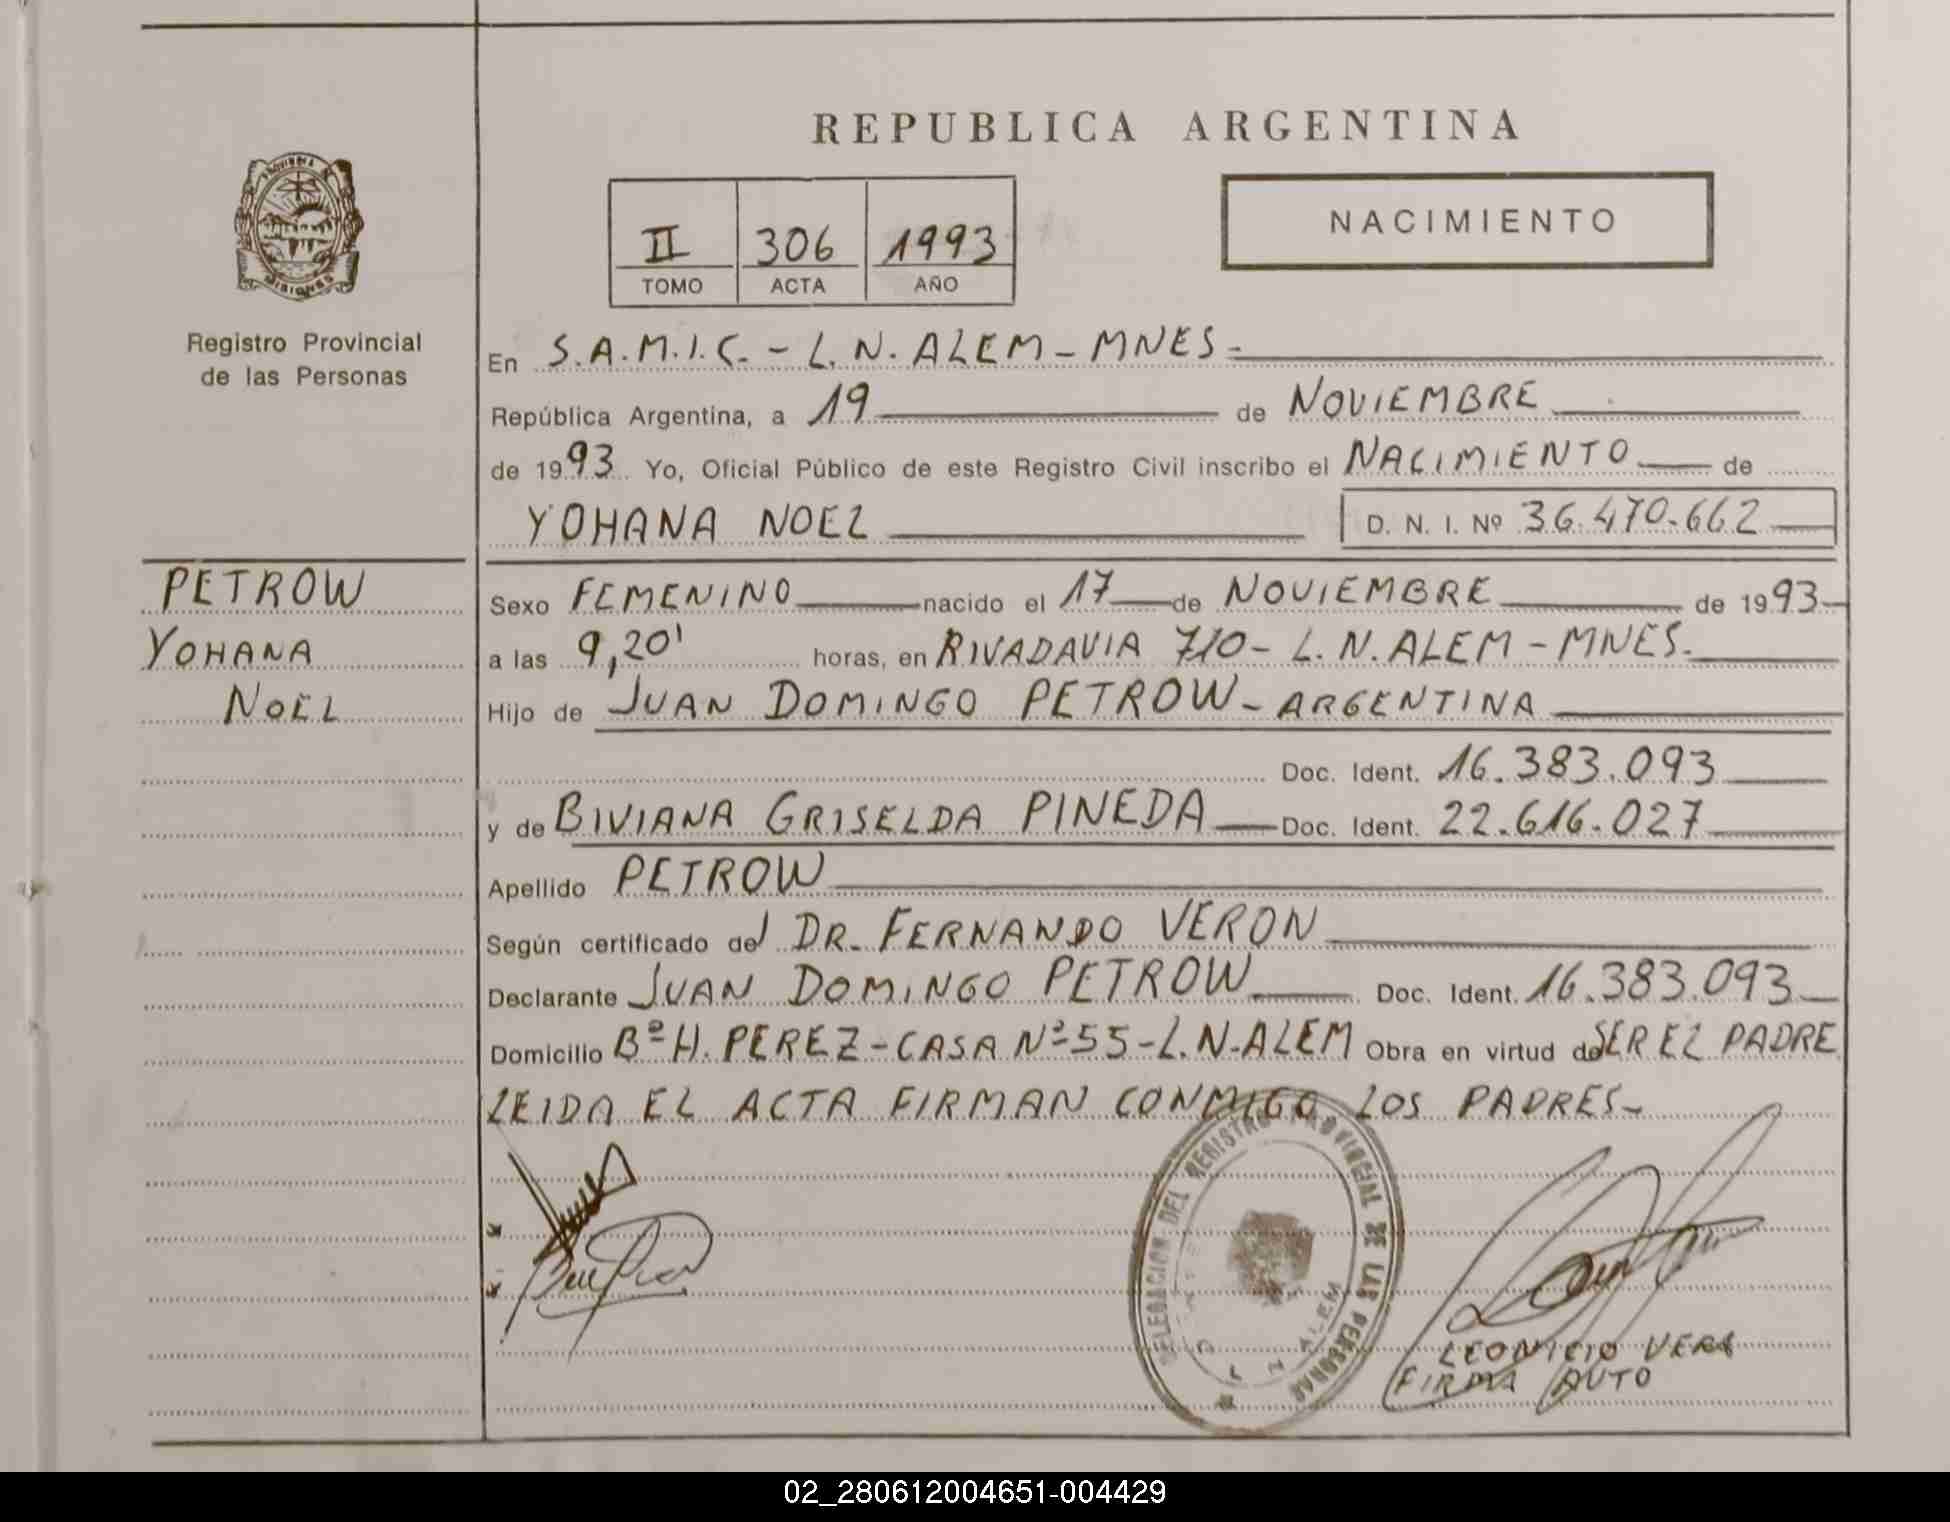 REPUBLICA ARGENTINA
II 306 1993
TOMO ACTA AÑO
NACIMIENTO
MISIONES
Registro Provincial
de las Personas
En S.A.M.I.C. - L.N. ALEM - MNES -
República Argentina, a 19 de NOVIEMBRE
de 1993 Yo, Oficial Público de este Registro Civil inscribo el NACIMIENTO de
YOHANA NOEL D. N. I. Nº 36.470.662
PETROW
YOHANA
NOEL
Sexo FEMENINO nacido el 17 de NOVIEMBRE de 1993
a las 9,20' horas, en RIVADAVIA 710 - L.N. ALEM - MNES.
Hijo de JUAN DOMINGO PETROW - ARGENTINA
Doc. Ident. 16.383.093
y de BIVIANA GRISELDA PINEDA Doc. Ident. 22.616.027
Apellido PETROW
Según certificado del DR. FERNANDO VERON
Declarante JUAN DOMINGO PETROW Doc. Ident. 16.383.093
Domicilio Bº H. PEREZ - CASA Nº 55 - L.N. ALEM Obra en virtud de SER EL PADRE
LEIDA EL ACTA FIRMAN CONMIGO LOS PADRES -
DELEGACION DEL REGISTRO PROVINCIAL DE LAS PERSONAS
N. ALEM
LEONICIO VERA
FIRMA AUTO
02_280612004651-004429